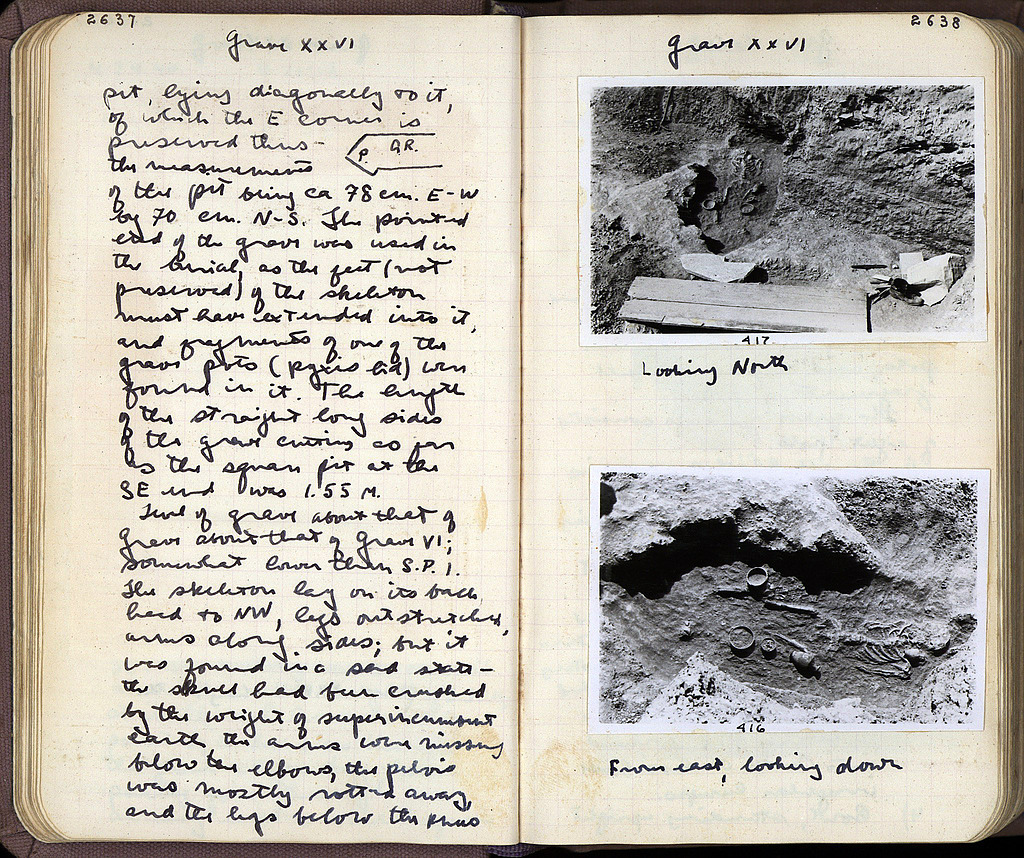 2637
Grave XXVI
pit, lying diagonally to it,
of which the E corner is
preserved thus -
P. GR.
the measurements
of the pit being ca 78 cm. E-W
by 70 cm. N-S. The pointed
end of the grave was used in
the burial, as the feet (not
preserved) of the skeleton
must have extended into it,
and fragments of one of the
grave pots (pyxis lid) were
found in it. The length
of the straight long sides
of the grave cutting as far
as the square pit at the
SE end was 1.55 M.
Level of grave about that of
Grave about that of Grave VI;
somewhat lower than S.P. 1.
The skeleton lay on its back,
head to NW, legs outstretched,
arms along sides; but it
was found in a sad state -
the skull had been crushed
by the weight of superincumbent
earth, the arms were missing
below the elbows, the pelvis
was mostly rotted away,
and the legs below the knees
2638
Grave XXVI
417
Looking North
416
From east, looking down